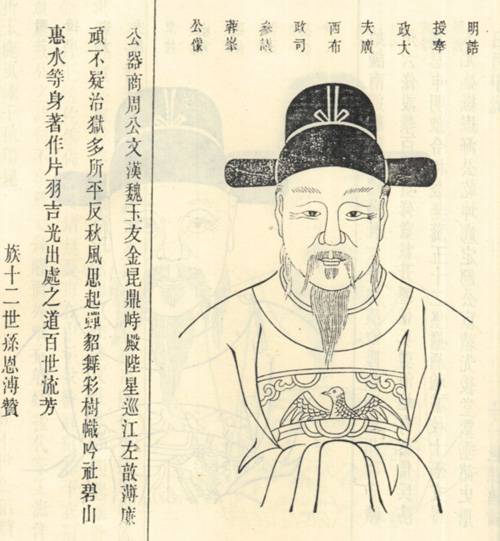 明誥
授奉
政大
夫廣
西布
政司
參議
峯
公像
公器商周公文漢魏玉友金昆鼎峙殿陛星巡江左敦薄廉
頑不疑治獄多所平反秋風思起蟬貂舞彩樹幟吟社碧山
惠水等身著作片羽吉光出處之道百世流芳
族十二世孫恩溥贊